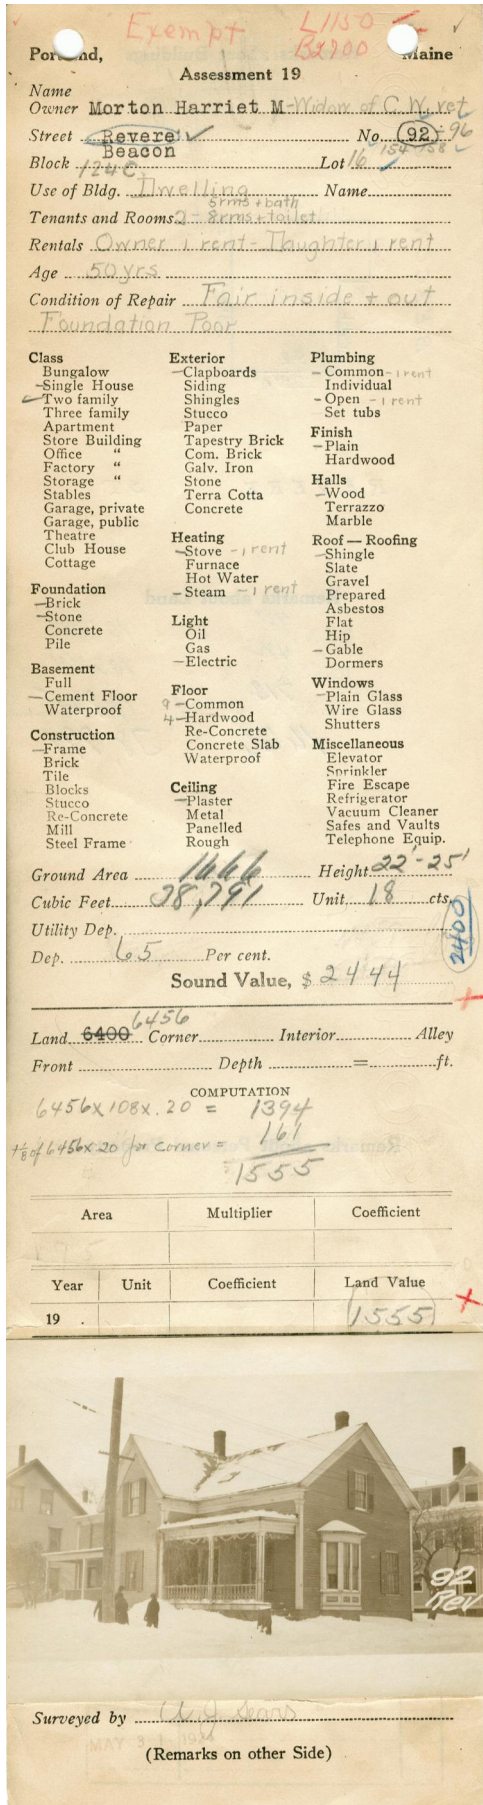 Exempt L 1150
B2700
Portland, Maine
Assessment 19
Name
Owner Morton Harriet M - Widow of C. W. vet
Street Revere ✓ No. 92 - 96
Beacon 154-158
Block 124 C Lot 16
Use of Bldg. Dwelling Name
5 rms + bath
Tenants and Rooms 2 - 8 rms + toilet
Rentals Owner 1 rent - Daughter 1 rent
Age 50 yrs
Condition of Repair Fair inside + out
Foundation Poor
Class
Bungalow
- Single House
Two family
Three family
Apartment
Store Building
Office "
Factory "
Storage "
Stables
Garage, private
Garage, public
Theatre
Club House
Cottage
Foundation
- Brick
- Stone
Concrete
Pile
Basement
Full
- Cement Floor
Waterproof
Construction
- Frame
Brick
Tile
Blocks
Stucco
Re-Concrete
Mill
Steel Frame
Exterior
- Clapboards
Siding
Shingles
Stucco
Paper
Tapestry Brick
Com. Brick
Galv. Iron
Stone
Terra Cotta
Concrete
Heating
- Stove - 1 rent
Furnace
Hot Water
- Steam - 1 rent
Light
Oil
Gas
- Electric
Floor
9 - Common
4 - Hardwood
Re-Concrete
Concrete Slab
Waterproof
Ceiling
- Plaster
Metal
Panelled
Rough
Plumbing
- Common - 1 rent
Individual
- Open - 1 rent
Set tubs
Finish
- Plain
Hardwood
Halls
- Wood
Terrazzo
Marble
Roof — Roofing
- Shingle
Slate
Gravel
Prepared
Asbestos
Flat
Hip
- Gable
Dormers
Windows
- Plain Glass
Wire Glass
Shutters
Miscellaneous
Elevator
Sprinkler
Fire Escape
Refrigerator
Vacuum Cleaner
Safes and Vaults
Telephone Equip.
Ground Area 1666 Height 22' - 25'
Cubic Feet 38,791 Unit 18 cts
Utility Dep.
2400
Dep. 65 Per cent.
Sound Value, $ 2444
6456
Land 6400 Corner Interior Alley
Front Depth = ft.
COMPUTATION
6456 x 108 x .20 = 1394
+ 1/8 of 6456 x 20 for corner = 161
1555
Area Multiplier Coefficient
Year Unit Coefficient Land Value
19 . 1555
92
Rev
Surveyed by Sears
(Remarks on other Side)